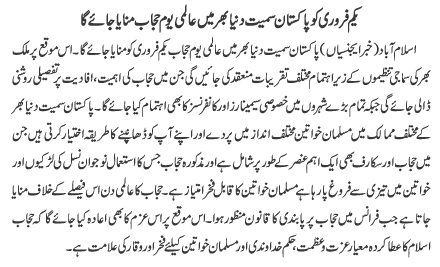 یکم فروری کو پاکستان سمیت دنیا بھر میں عالمی یوم حجاب منایا جائے گا
اسلام آباد (خبر ایجنسیاں) پاکستان سمیت دنیا بھر میں عالمی یوم حجاب یکم فروری کو منایا جائے گا۔ اس موقع پر ملک
بھر کی سماجی تنظیموں کے زیر اہتمام مختلف تقریبات منعقد کی جائیں گی جن میں حجاب کی اہمیت، افادیت پر تفصیلی روشنی
ڈالی جائے گی جبکہ تمام بڑے شہروں میں خصوصی سیمینارز اور کانفرنسز کا بھی اہتمام کیا جائے گا۔ پاکستان سمیت دنیا بھر
کے مختلف ممالک میں مسلمان خواتین مختلف انداز میں پردے اور اپنے آپ کو ڈھانپنے کا طریقہ اختیار کرتی ہیں جن میں
حجاب اور سکارف بھی ایک اہم عنصر کے طور پر شامل ہے اور مذکورہ حجاب جس کا استعمال نوجوان نسل کی لڑکیوں اور
خواتین میں تیزی سے فروغ پا رہا ہے مسلمان خواتین کا قابل فخر امتیاز ہے۔ حجاب کا عالمی دن اس فیصلے کے خلاف منایا
جاتا ہے جب فرانس میں حجاب پر پابندی کا قانون منظور ہوا۔ اس موقع پر اس عزم کا بھی اعادہ کیا جائے گا کہ حجاب
اسلام کا عطا کردہ معیار عزت و عظمت، حکم خداوندی اور مسلمان خواتین کیلئے فخر اور وقار کی علامت ہے۔